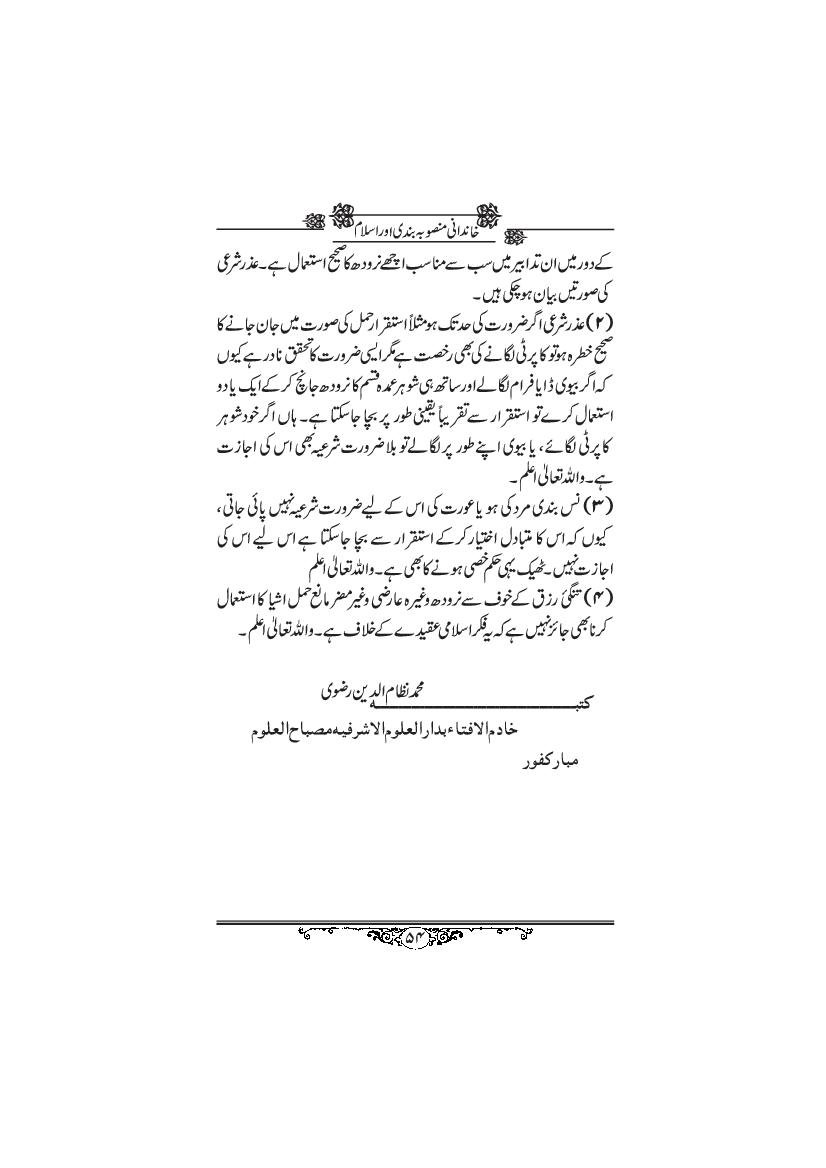 خاندانی منصوبہ بندی اور اسلام
کے دور میں ان تدابیر میں سب سے مناسب اچھے نرودھ کا صحیح استعمال ہے۔ عذر شرعی
کی صورتیں بیان ہو چکی ہیں ۔
(۲) عذر شرعی اگر ضرورت کی حد تک ہو مثلاً استقرار حمل کی صورت میں جان جانے کا
صحیح خطرہ ہو تو کاپرٹی لگانے کی بھی رخصت ہے مگر ایسی ضرورت کا تحقق نادر ہے کیوں
کہ اگر بیوی ڈایا فرام لگالے اور ساتھ ہی شوہر عمدہ قسم کا نرودھ جانچ کر کے ایک یا دو
استعمال کرے تو استقرار سے تقریباً یقینی طور پر بچا جاسکتا ہے۔ ہاں اگر خود شوہر
کاپرٹی لگائے، یا بیوی اپنے طور پر لگالے تو بلا ضرورت شرعیہ بھی اس کی اجازت
ہے۔ واللہ تعالیٰ اعلم ۔
(۳) نس بندی مرد کی ہو یا عورت کی اس کے لیے ضرورت شرعیہ نہیں پائی جاتی،
کیوں کہ اس کا متبادل اختیار کرکے استقرار سے بچا جاسکتا ہے اس لیے اس کی
اجازت نہیں۔ ٹھیک یہی حکم خصی ہونے کا بھی ہے۔ واللہ تعالیٰ اعلم
(۴) تنگیٔ رزق کے خوف سے نرودھ وغیرہ عارضی وغیر مضر مانع حمل اشیا کا استعمال
کرنا بھی جائز نہیں ہے کہ یہ فکر اسلامی عقیدے کے خلاف ہے۔ واللہ تعالیٰ اعلم ۔
محمد نظام الدین رضوی
کتبـــــــــــــــــــــــہ
خادم الافتاء بدار العلوم الاشرفیہ مصباح العلوم
مبارکفور
۵۴